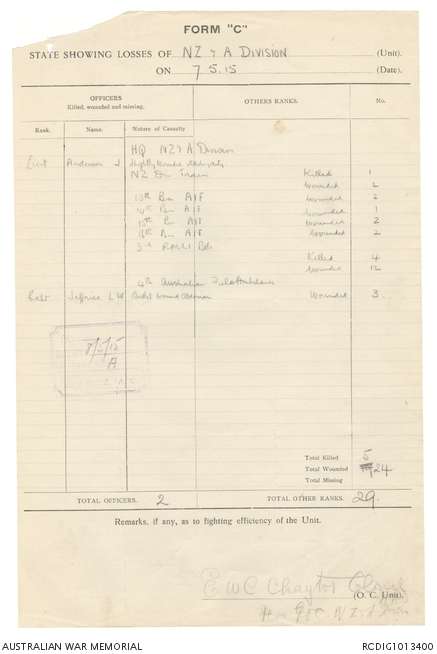 FORM "C"
STATE SHOWING LOSSES OF NZ & A DIVISION (Unit).
ON 7 5.15 (Date).
OFFICERS
Killed, wounded and missing.
OTHERS RANKS.
No.
Rank. Name. Nature of Casualty
HQ NZ & A Division
Lieut Anderson J Slightly
NZ Div Train Killed 1
Wounded 2
13th Bn AIF Wounded 2
14th Bn AIF Wounded 1
15th Bn AIF Wounded 2
16th Bn AIF Wounded 2
3rd RMLI Bde
Killed 4
Wounded 12
4th Australian Field Ambulance
Capt Jeffries L W wound Wounded 3
8/5/15
A
Total Killed 5
Total Wounded 24
Total Missing
TOTAL OFFICERS. 2 TOTAL OTHER RANKS. 29.
Remarks, if any, as to fighting efficiency of the Unit.
E W C Chaytor Colonel
(O. C. Unit).
NZ & A Division
AUSTRALIAN WAR MEMORIAL RCDIG1013400